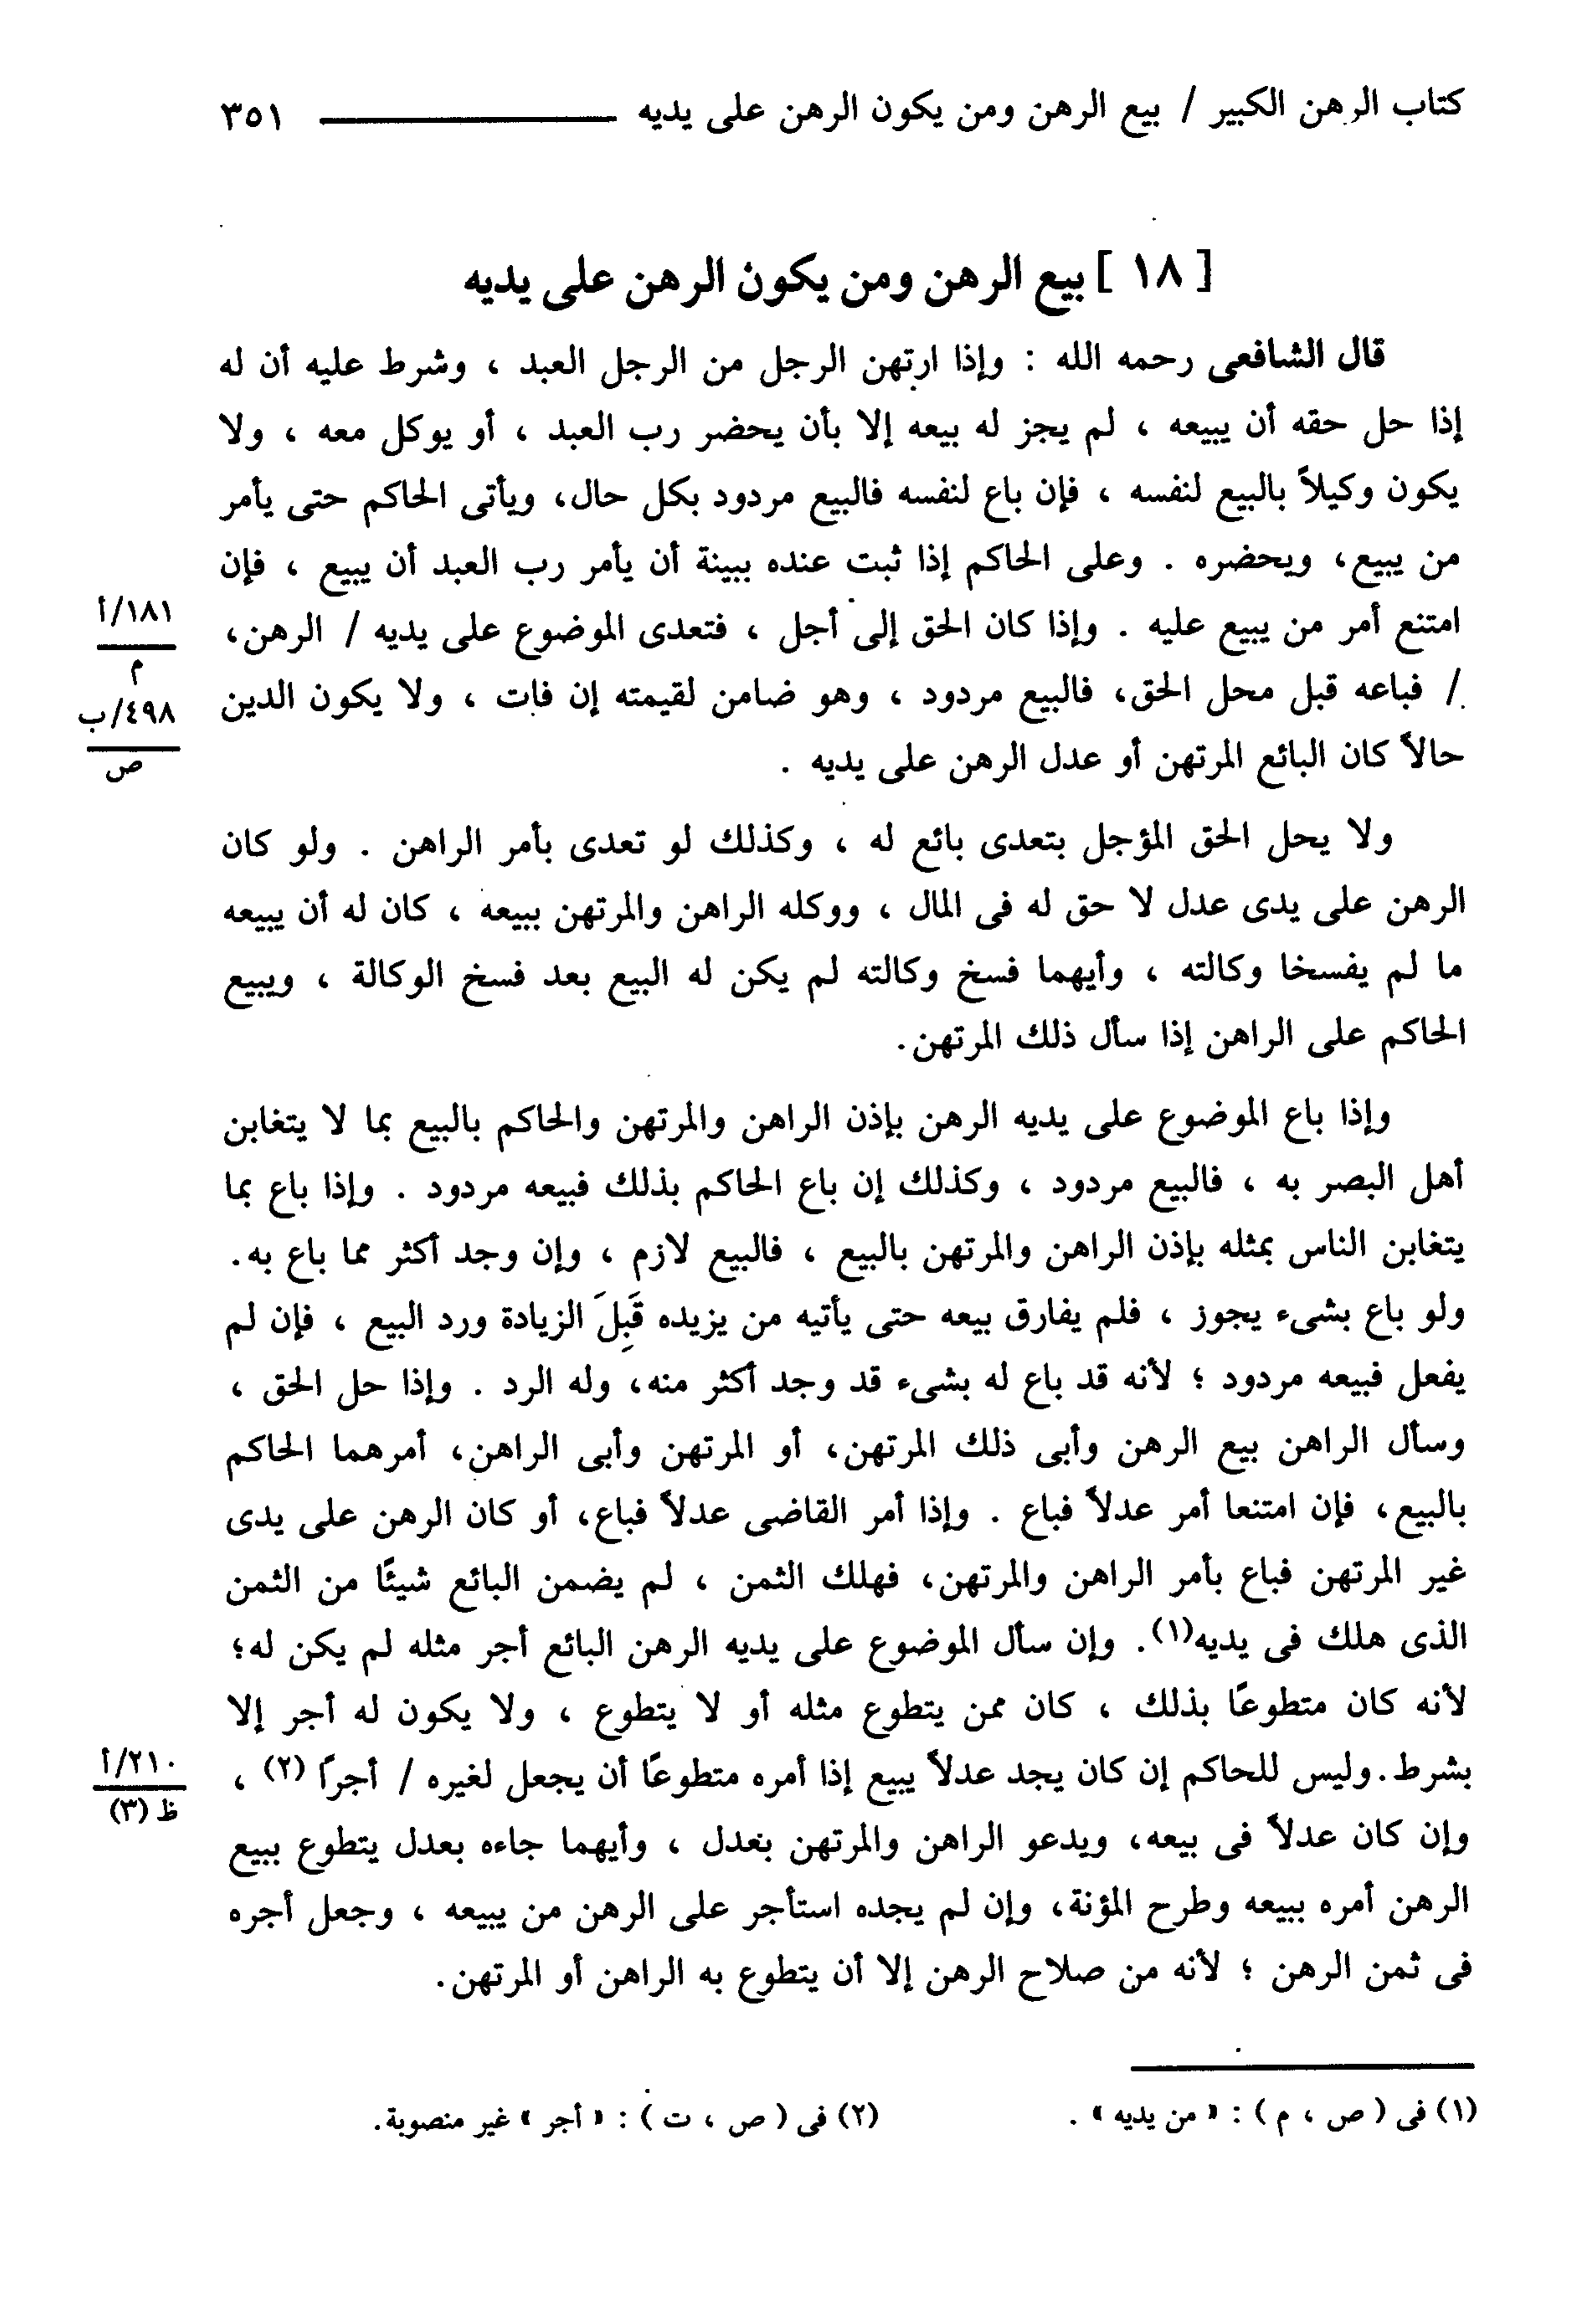 كتاب الرهن الكبير / بيع الرهن ومن يكون الرهن على يديه ــــــــــــــــ ٣٥١
[ ١٨ ] بيع الرهن ومن يكون الرهن على يديه
قال الشافعى رحمه الله : وإذا ارتهن الرجل من الرجل العبد ، وشرط عليه أن له
إذا حل حقه أن يبيعه ، لم يجز له بيعه إلا بأن يحضر رب العبد ، أو يوكل معه ، ولا
يكون وكيلاً بالبيع لنفسه ، فإن باع لنفسه فالبيع مردود بكل حال، ويأتى الحاكم حتى يأمر
من يبيع، ويحضره . وعلى الحاكم إذا ثبت عنده ببينة أن يأمر رب العبد أن يبيع ، فإن
امتنع أمر من يبيع عليه . وإذا كان الحق إلى أجل ، فتعدى الموضوع على يديه / الرهن،
١٨١/أ
م
/ فباعه قبل محل الحق، فالبيع مردود ، وهو ضامن لقيمته إن فات ، ولا يكون الدين
٤٩٨/ب
ص
حالاً كان البائع المرتهن أو عدل الرهن على يديه .
ولا يحل الحق المؤجل بتعدى بائع له ، وكذلك لو تعدى بأمر الراهن . ولو كان
الرهن على يدى عدل لا حق له فى المال ، ووكله الراهن والمرتهن ببيعه ، كان له أن يبيعه
ما لم يفسخا وكالته ، وأيهما فسخ وكالته لم يكن له البيع بعد فسخ الوكالة ، ويبيع
الحاكم على الراهن إذا سأل ذلك المرتهن.
وإذا باع الموضوع على يديه الرهن بإذن الراهن والمرتهن والحاكم بالبيع بما لا يتغابن
أهل البصر به ، فالبيع مردود ، وكذلك إن باع الحاكم بذلك فبيعه مردود . وإذا باع بما
يتغابن الناس بمثله بإذن الراهن والمرتهن بالبيع ، فالبيع لازم ، وإن وجد أكثر مما باع به.
ولو باع بشىء يجوز ، فلم يفارق بيعه حتى يأتيه من يزيده قَبِلَ الزيادة ورد البيع ، فإن لم
يفعل فبيعه مردود ؛ لأنه قد باع له بشىء قد وجد أكثر منه، وله الرد . وإذا حل الحق ،
وسأل الراهن بيع الرهن وأبى ذلك المرتهن، أو المرتهن وأبى الراهن، أمرهما الحاكم
بالبيع، فإن امتنعا أمر عدلاً فباع . وإذا أمر القاضى عدلاً فباع، أو كان الرهن على يدى
غير المرتهن فباع بأمر الراهن والمرتهن، فهلك الثمن ، لم يضمن البائع شيئًا من الثمن
الذى هلك فى يديه(١). وإن سأل الموضوع على يديه الرهن البائع أجر مثله لم يكن له؛
لأنه كان متطوعًا بذلك ، كان ممن يتطوع مثله أو لا يتطوع ، ولا يكون له أجر إلا
بشرط. وليس للحاكم إن كان يجد عدلاً يبيع إذا أمره متطوعًا أن يجعل لغيره / أجرًا (٢) ،
٢١٠/أ
ظ (٣)
وإن كان عدلاً فى بيعه، ويدعو الراهن والمرتهن بعدل ، وأيهما جاءه بعدل يتطوع ببيع
الرهن أمره ببيعه وطرح المؤنة، وإن لم يجده استأجر على الرهن من يبيعه ، وجعل أجره
فى ثمن الرهن ؛ لأنه من صلاح الرهن إلا أن يتطوع به الراهن أو المرتهن.
(١) فى ( ص ، م ) : « من يديه » .
(٢) فى ( ص ، ت ) : « أجر » غير منصوبة.